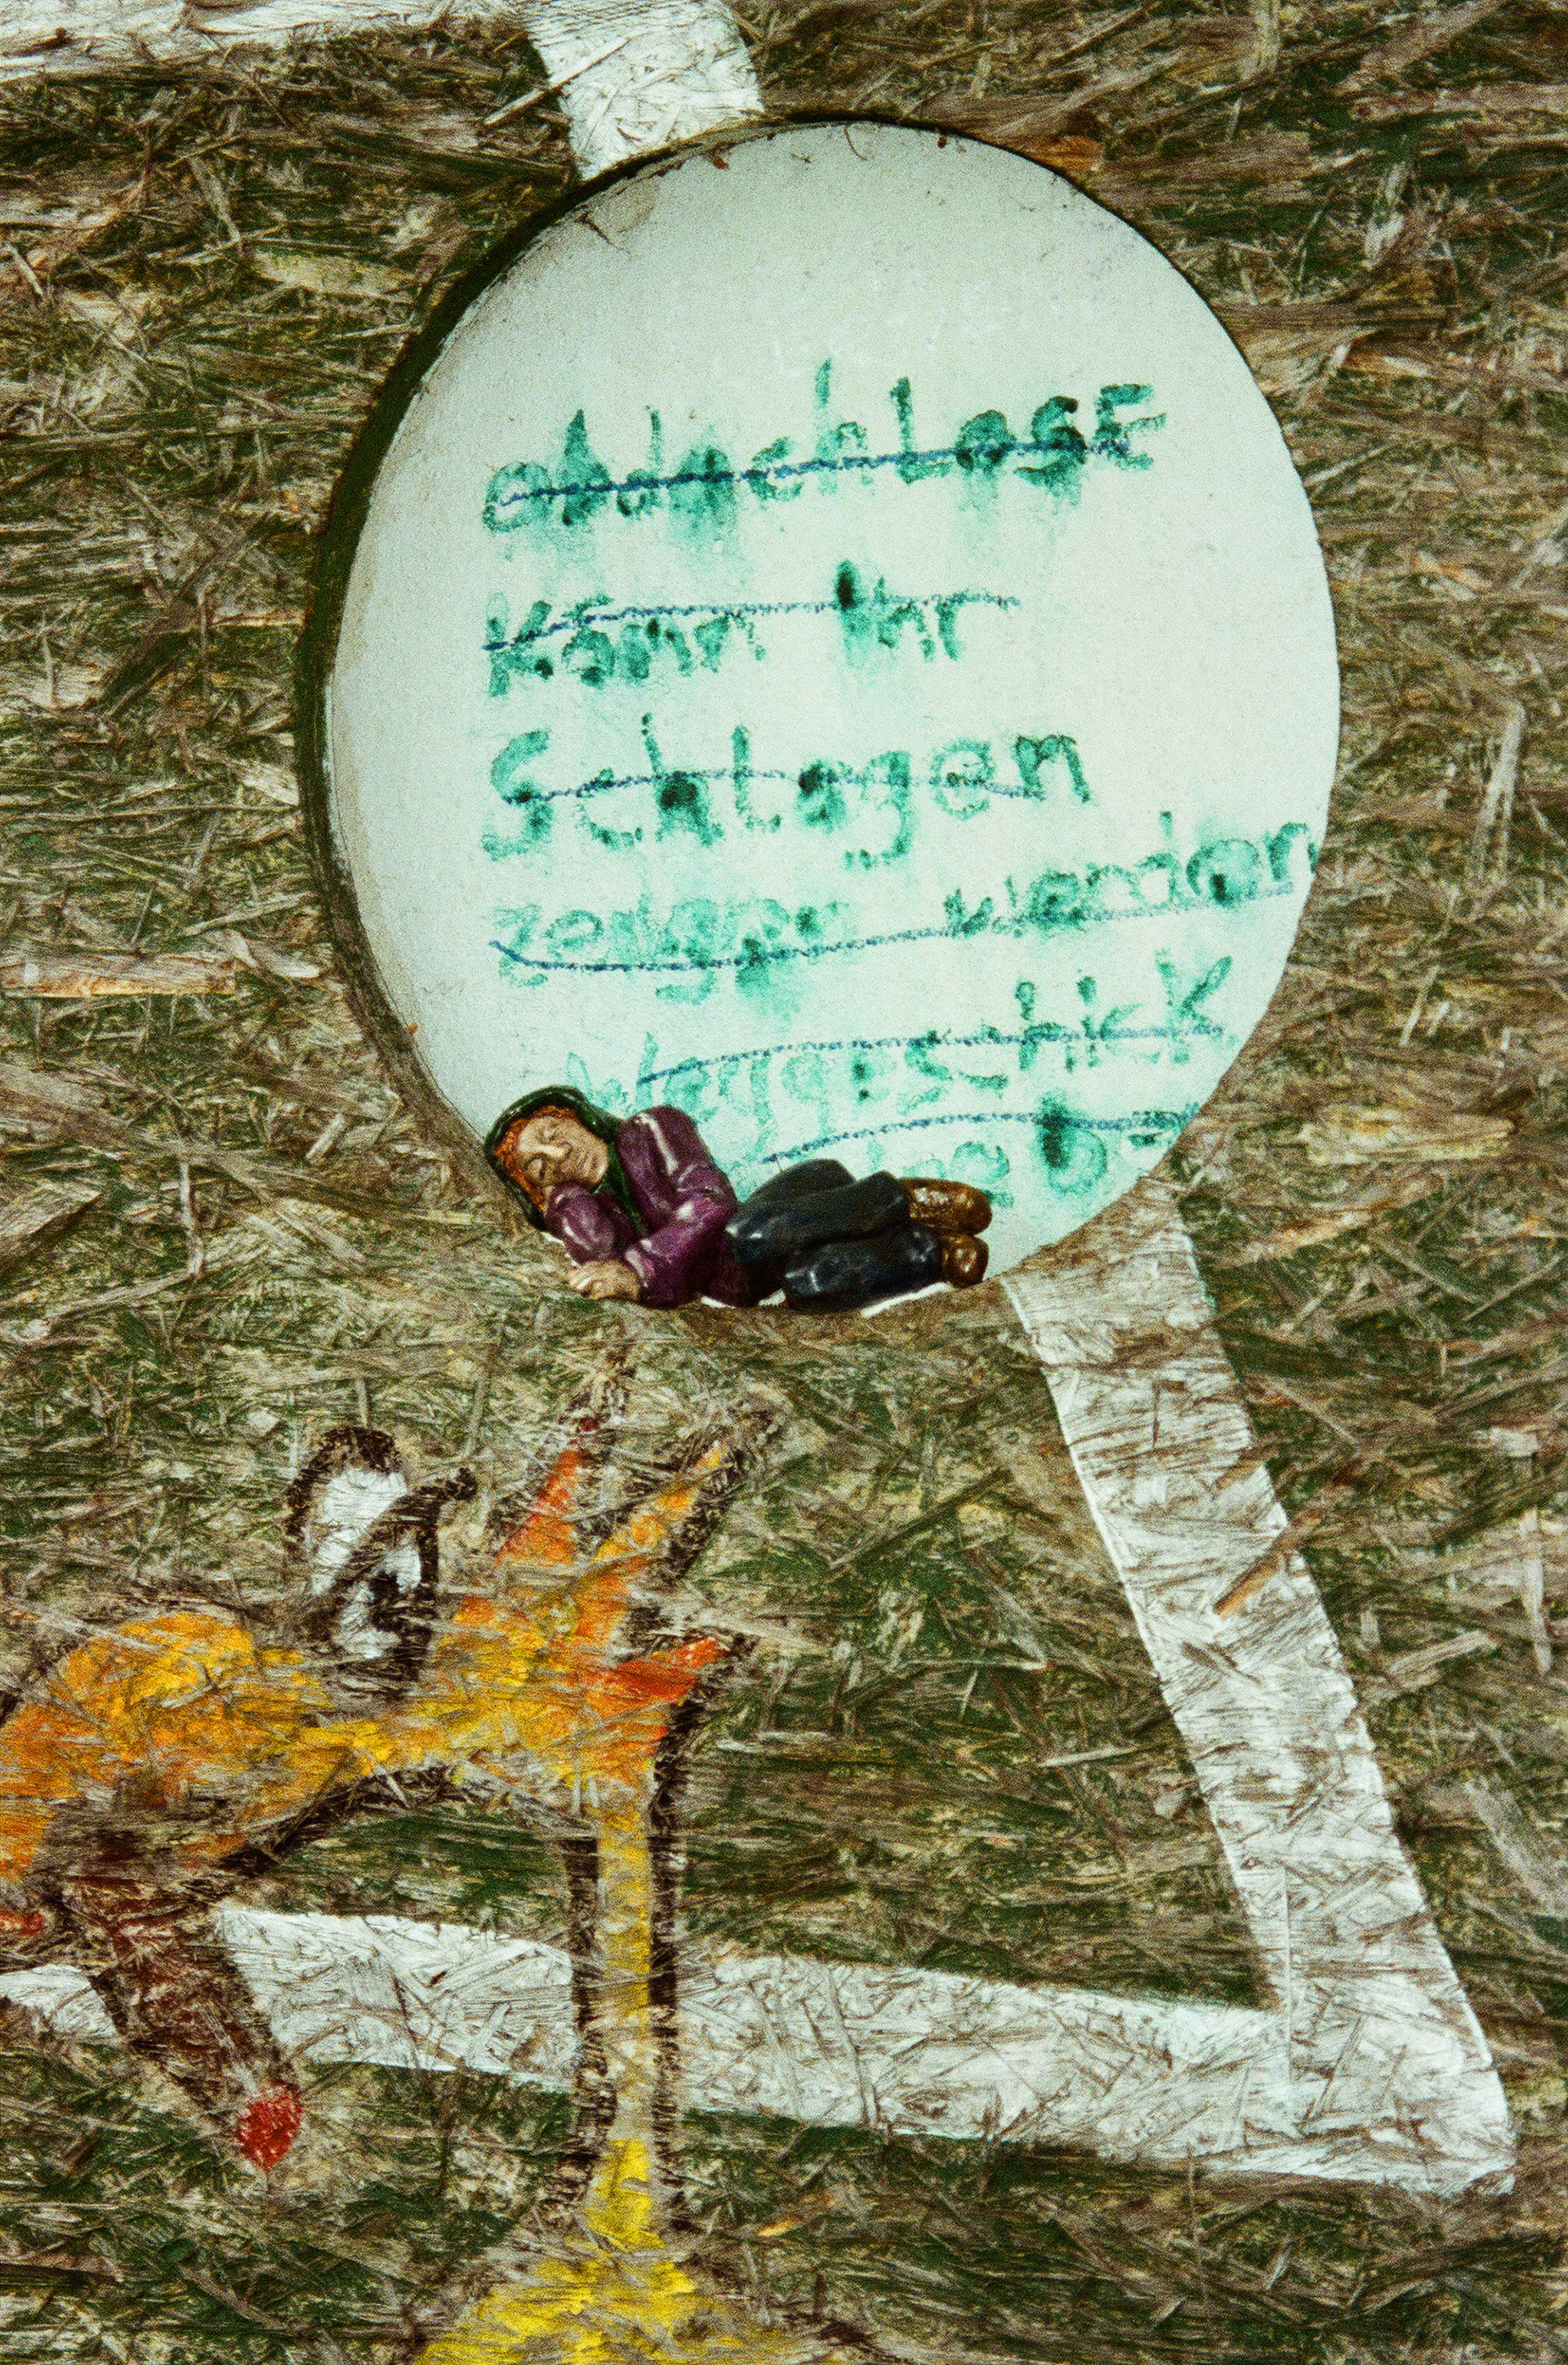 obdachLosE
Könn Ihr
Schlagen
werden
Weggeschick